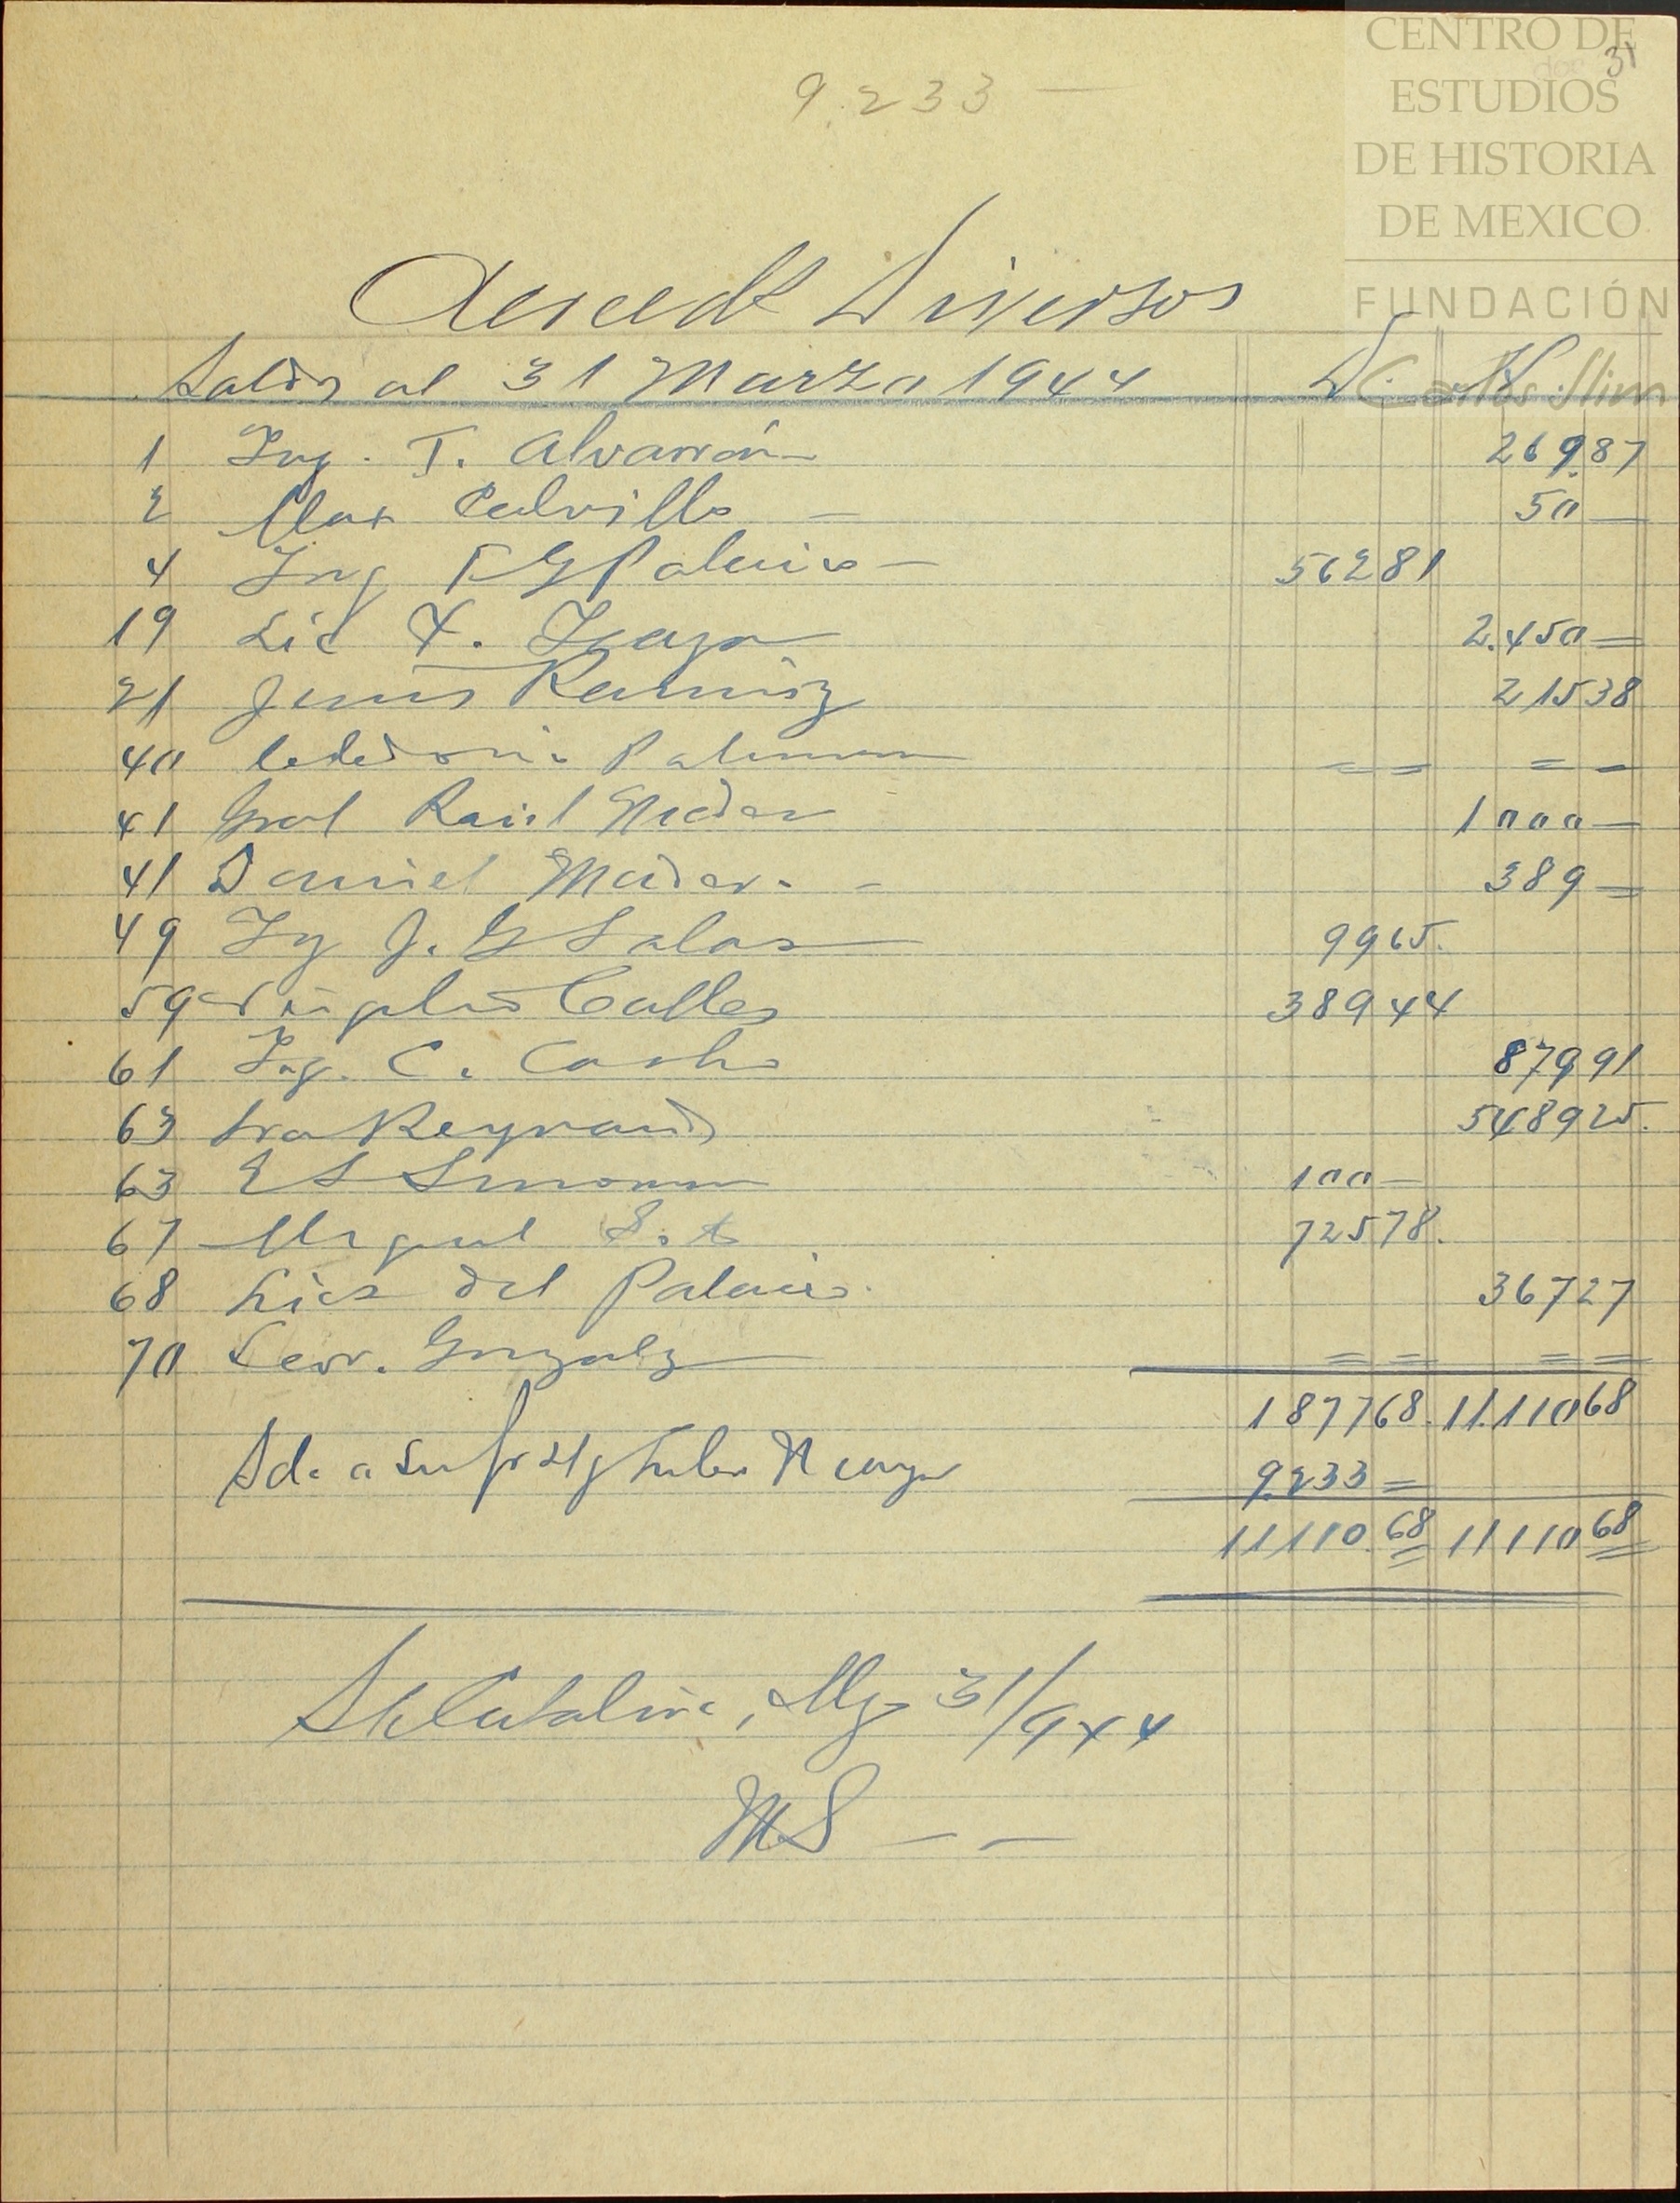 CENTRO DE
ESTUDIOS
DE HISTORIA
DE MEXICO
FUNDACIÓN
Carlos Slim
31
9.233 —
Acreeds Diversos
Saldos al 31 Marzo 1944 D. H.
1 Ing. T. Alvarrón 269.87
2 Max Calvillo — 50 —
4 Ing F G Palacio — 56281
19 Lic F. 2.450 =
21 Jesus Ramirez 21538
40 Celedonio = = = =
41 Gral Raul Madero 1000 —
41 Daniel Madero — 389 =
49 Ing J. G Salas 9965.
59 Calles 38944
61 Ing. C. Castro 87991
63 Sra Reynaud 548925.
63 E S 100 —
67 Miguel 72578.
68 Lics del Palacio. 36727
70 Leov. Gonzalez = = = =
187768. 11.11068
Sdo a su fr 9233 =
11110.68 1111068
Sta Catalina, Mzo 31/944
MS — —